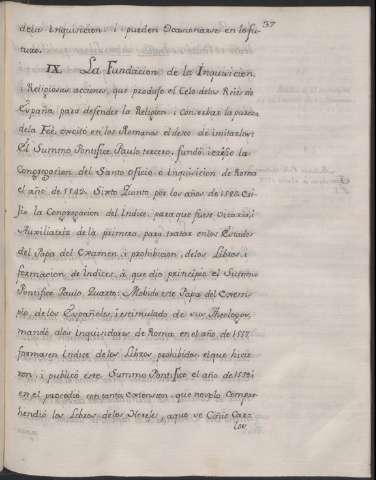 37
de la Inquisicion, i pueden Ocacionarse en lo fu-
turo.
IX. La Fundacion de la Inquisicion,
i Religiosas acciones, que produjo el Celo de los Reies de
España, para defender la Religion, i Conservar la pureza
de la Feè, excitò en los Romanos el deseo de imitarlos:
El Summo Pontifice Paulo tercero, fundò, i
Congregacion del Santo oficio è Inquisicion de Roma
el año de 1542. Sixto Quinto por los años de 1588. Eri-
jio la Congregacion del Indice, para que fuese Vicaria, i
Auxiliatriz de la primera, para tratar en los Estados
del Papa del Examen, i prohibicion, de los Libros, i
formacion de Indices, à que dio principio el Summo
Pontifice Paulo Quarto: Mobido este Papa del Exem-
plo, de los Españoles, i estimulado de sus Theologos,
mandò, a los Inquisidores de Roma en el año de 1557.
formasen Indice de los Libros prohibidos el que hicie-
ron, i publicò este Summo Pontifice el año de 1559:
en el procediò con tanta extension, que no solo Compre-
hendiò los Libros de los Hereges, a que se Ciñe Car-
los